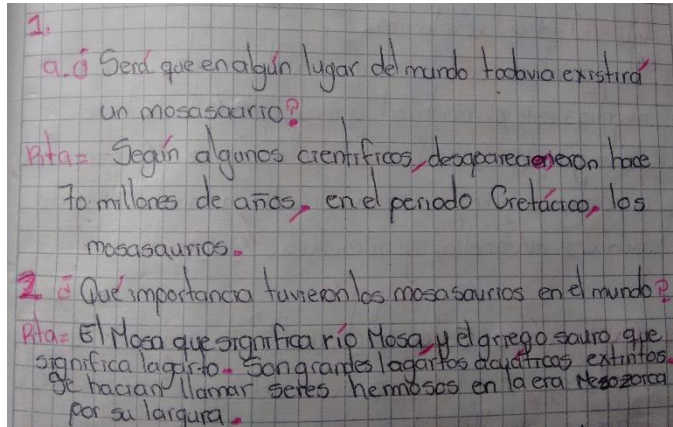 1.
a. ¿ Será que en algún lugar del mundo todavia existirá
un mosasaurio?
Rta= Según algunos científicos, desaparecieron hace
70 millones de años, en el periodo Cretácico, los
mosasaurios.
2. ¿ Qué importancia tuvieron los mosasaurios en el mundo?
Rta= El Mosa que significa río Mosa y el griego sauro, que
significa lagarto. Son grandes lagartos acuáticos extintos.
Se hacian llamar seres hermosos en la era Mesozoica
por su largura.